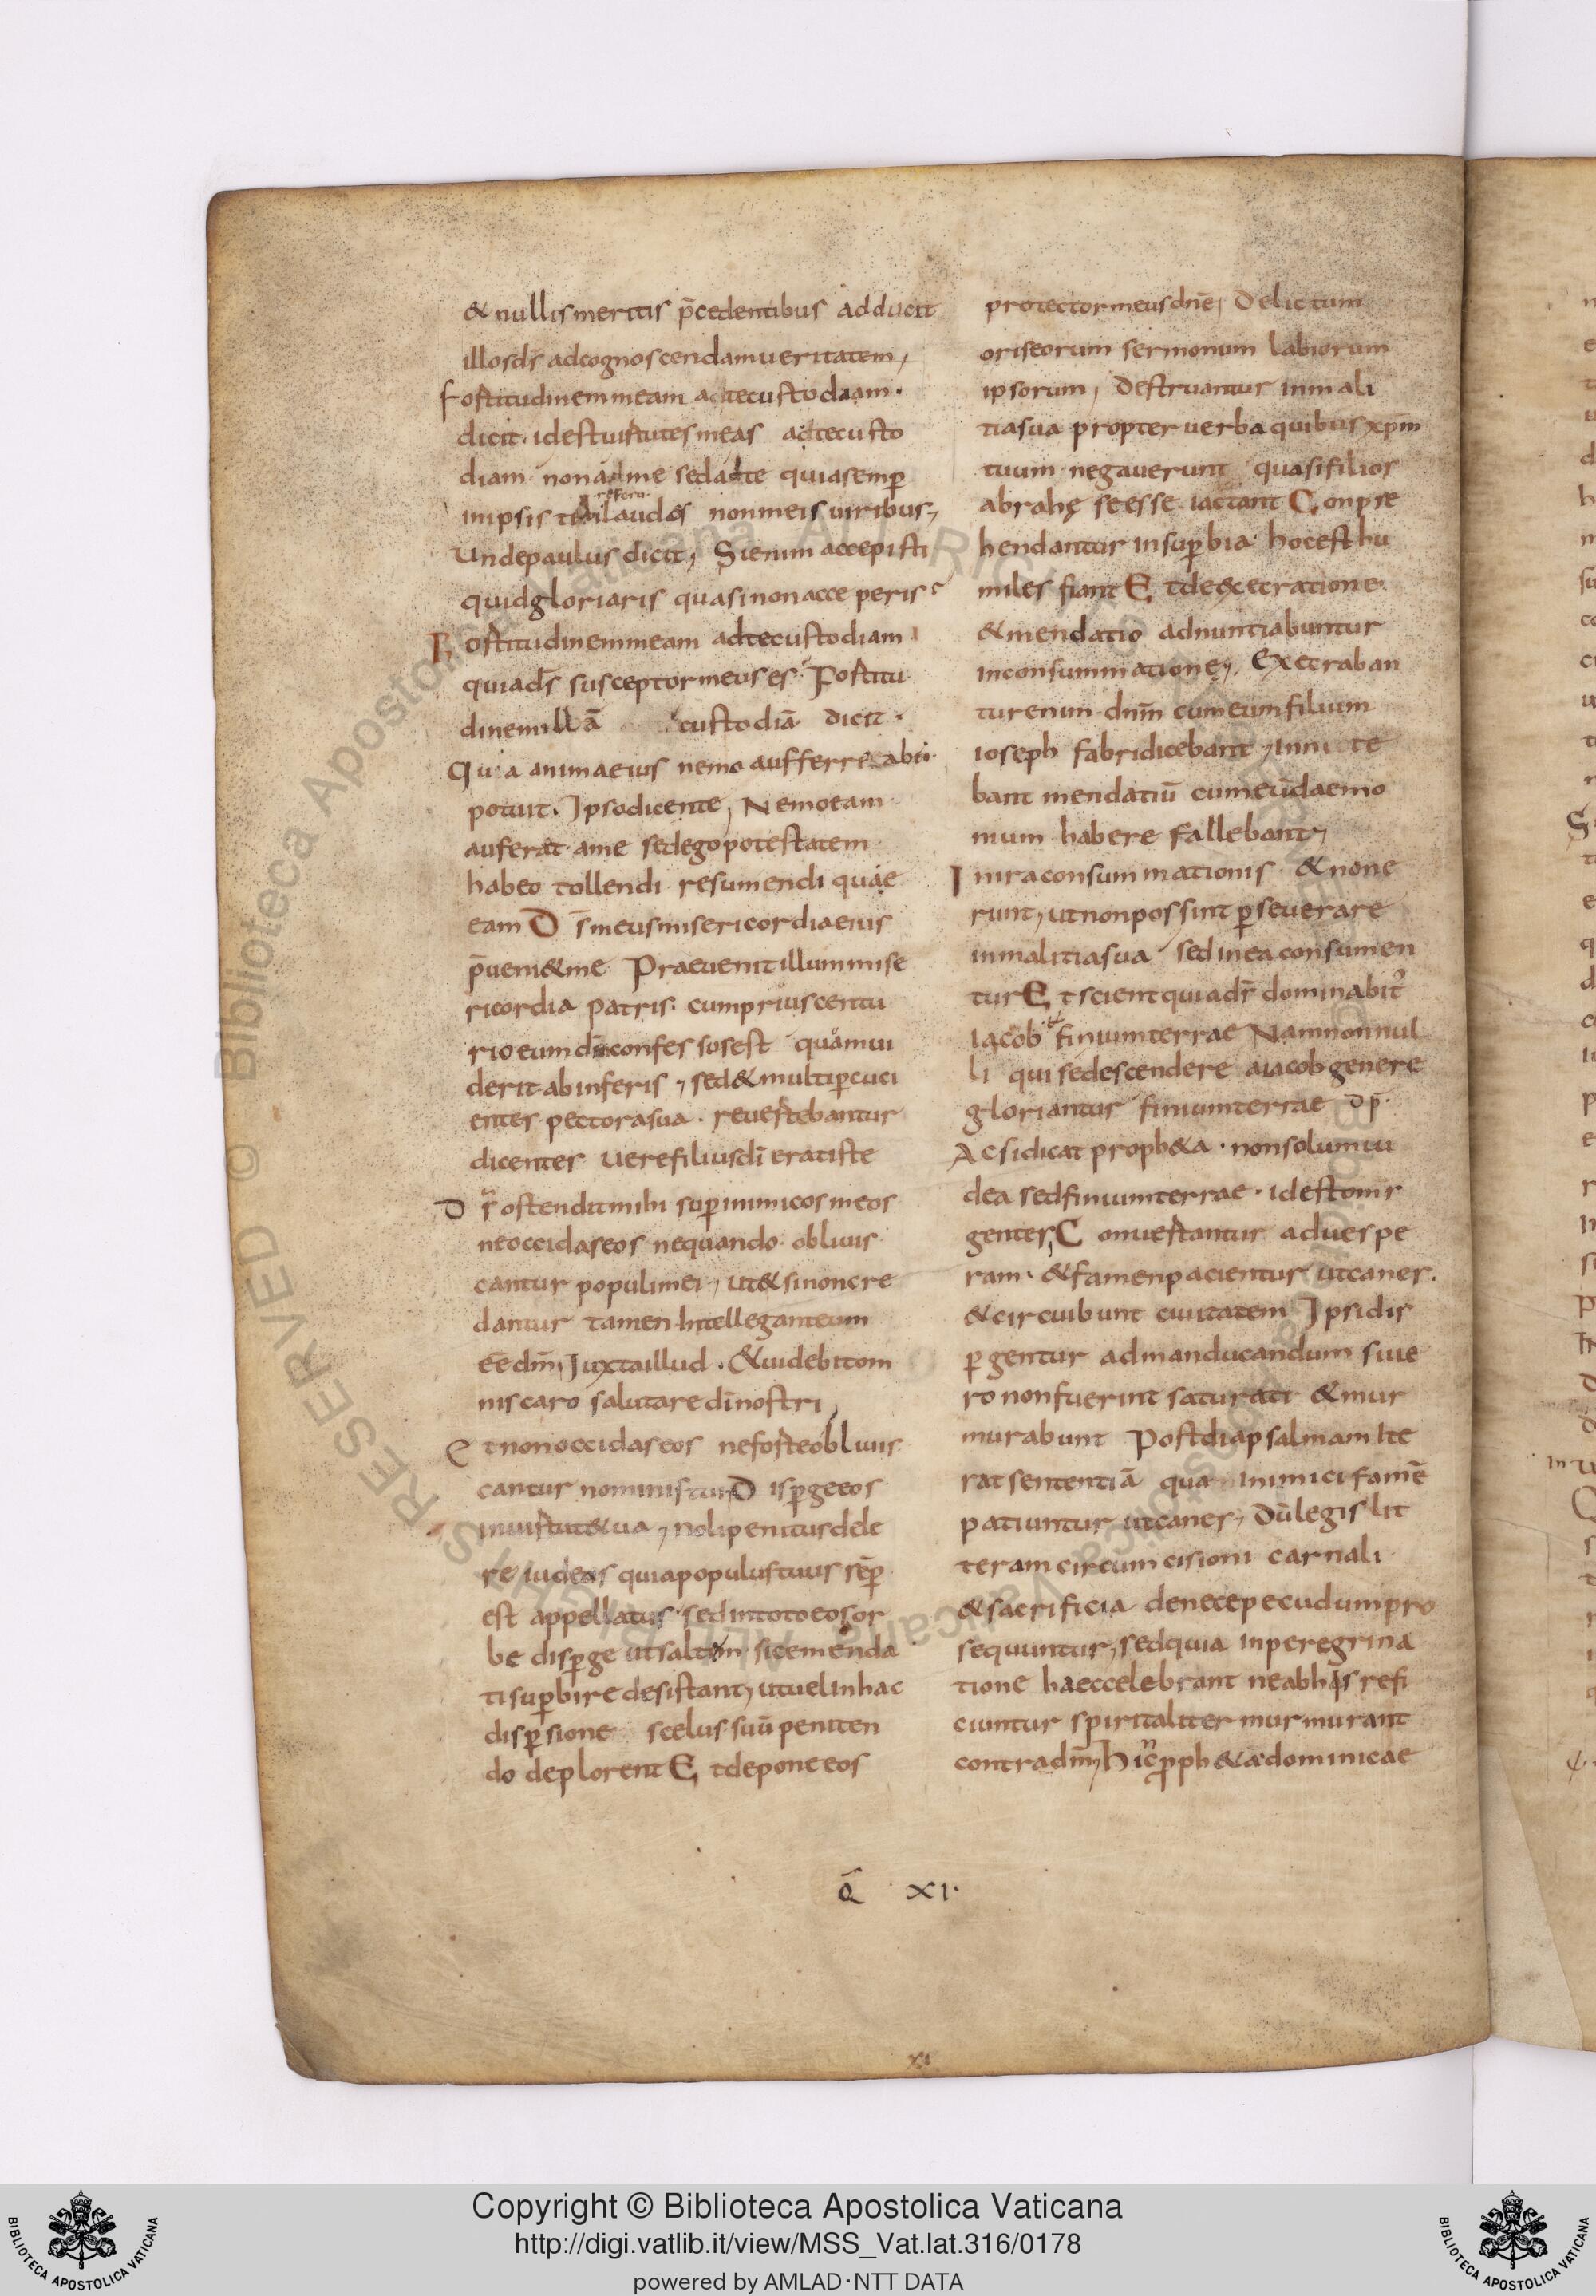 & nullis meritis p̄cedentibus adducit
illos ds̄ ad cognoscendam ueritatem,
Fortitudinem meam ad te custodiam·
dicit· id est uirtutes meas ad te custo
diam· non ad me sed ad te quia semp̄
in ipsis tibi laudes refero non meis uiribus,
Unde paulus dicit, Si enim accepisti
quid gloriaris quasi non acceperis
Fortitudinem meam ad te custodiam
quia ds̄ susceptor meus es· Fortitu
dinem illā custodiā dicit·
Quia anima eius nemo aufferre ab
potuit· Ipso dicente, Nemo eam
auferat a me sed ego potestatem
habeo tollendi resumendi quae
eam Ds̄ meus misericordia eius
p̄ueni&me Praeuenit illum mise
ricordia patris· cum prius centu
rio eum confessus est quam ui
derit ab inferis, sed & multi percuci
entes pectora sua· reuertebantur
dicentes uere filius dī erat iste
Ds̄ ostendit mihi sup inimicos meos
ne occidas eos ne quando obliuis
cantur populi mei, ut & si non cre
dantur tamen intellegant eum
eē dm̄, Iuxta illud· & uidebit om
nis caro salutare dī nostri,
Et non occidas eos ne forte obliuis
cantur nominis tui Disp̄ge eos
in uirtute tua, noli penitus dele
re iudeos quia populus tuus sēp
est appellatus· sed in toto eos or
be disp̄ge ut saltem sic emenda
ti sup̄bire desistant, ut uel in hac
disp̄sione scelus suū peniten
do deplorent Et depone eos
protector meus dn̄e, Delictum
oris eorum sermonum labiorum
ipsorum, Destruantur in mali
tia sua propter uerba quibus xp̄m
tuum negauerunt quasi filios
abrahę se esse iactant Conpre
hendantur in sup̄bia· hoc est hu
miles fiant Et de execratione
& mendatio adnuntiabuntur
in consummatione, Execraban
tur enim dnm̄ cum eum filium
ioseph fabri dicebant,
bant mendatiū cum eū daemo
nium habere fallebant,
In ira consummationis & non e
runt, ut non possint p̄seuerare
in malitia sua sed in ea consumen
tur Et scient quia ds̄ dominabit̄
iacob & finium terrae Nam non nul
li qui se descendere a iacob genere
gloriantur finium terrae dp̄·
Ac si dicat proph&a· non solum iu
dea sed finium terrae· id est omis
gentes, Conuertantur ad uespe
ram· & famen pacientur ut canes·
& circuibunt ciuitatem Ipsi dis
p̄gentur ad manducandum si ue
ro non fuerint saturati & mur
murabunt Post diapsalmam ite
rat sententiā qua inimici famē
patiuntur ut canes, Dū legis lit
teram circumcisioni carnali
& sacrificia de nece pecudum pro
sequuntur, sed quia in peregrina
tione haec celebrant ne ab his refi
ciuntur spiritaliter murmurant
contra dm̄, Hic pph&a dominicae
Q̄ XI·
XI
Copyright © Biblioteca Apostolica Vaticana
http://digi.vatlib.it/view/MSS_Vat.lat.316/0178
powered by AMLAD·NTT DATA
BIBLIOTECA APOSTOLICA VATICANA
BIBLIOTECA APOSTOLICA VATICANA